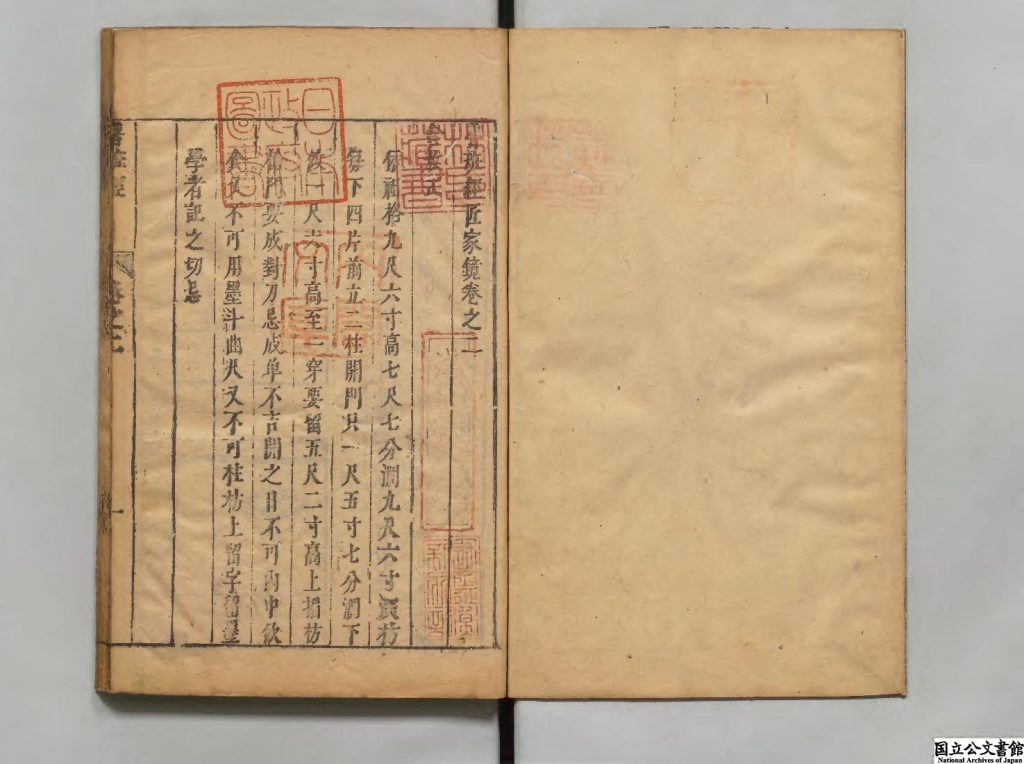 魯班經匠家鏡卷之二
倉敖式
依祖格九尺六寸高七尺七分濶九尺六寸深枋
每下四片前立二柱開門只一尺五寸七分濶下
做一尺六寸高至一穿要留五尺二寸高上楣枋
鎗門要成對刀忌成单不吉開之日不可內中飲
食又不可用墨斗曲尺又不可柱枋上留字留墨
學者記之切忌
卷之二
一
日本
政府
圖書
国立公文書館
National Archives of Japan